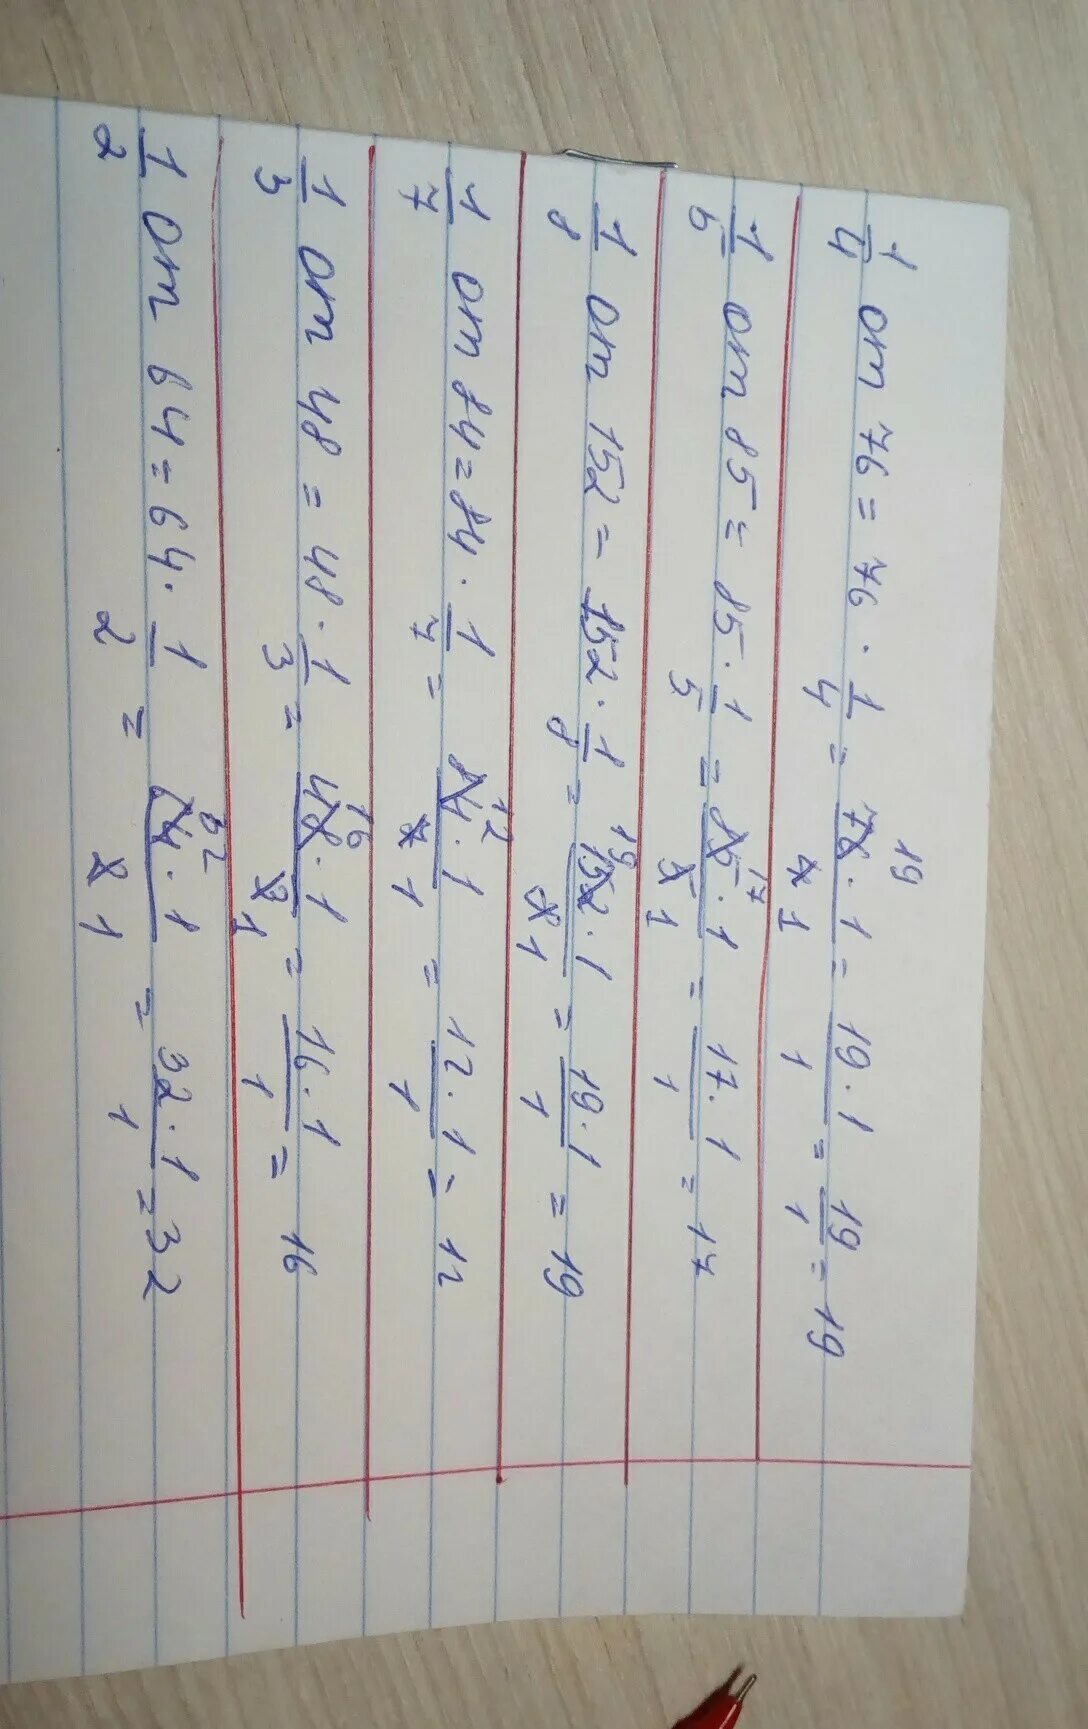 1/4 от 76 = 76 · 1/4 = 76 19 · 1 / 4 1 = 19 · 1 / 1 = 19/1 = 19
1/5 от 85 = 85 · 1/5 = 85 17 · 1 / 5 1 = 17 · 1 / 1 = 17
1/8 от 152 = 152 · 1/8 = 152 19 · 1 / 8 1 = 19 · 1 / 1 = 19
1/7 от 84 = 84 · 1/7 = 84 12 · 1 / 7 1 = 12 · 1 / 1 = 12
1/3 от 48 = 48 · 1/3 = 48 16 · 1 / 3 1 = 16 · 1 / 1 = 16
1/2 от 64 = 64 · 1/2 = 64 32 · 1 / 2 1 = 32 · 1 / 1 = 32